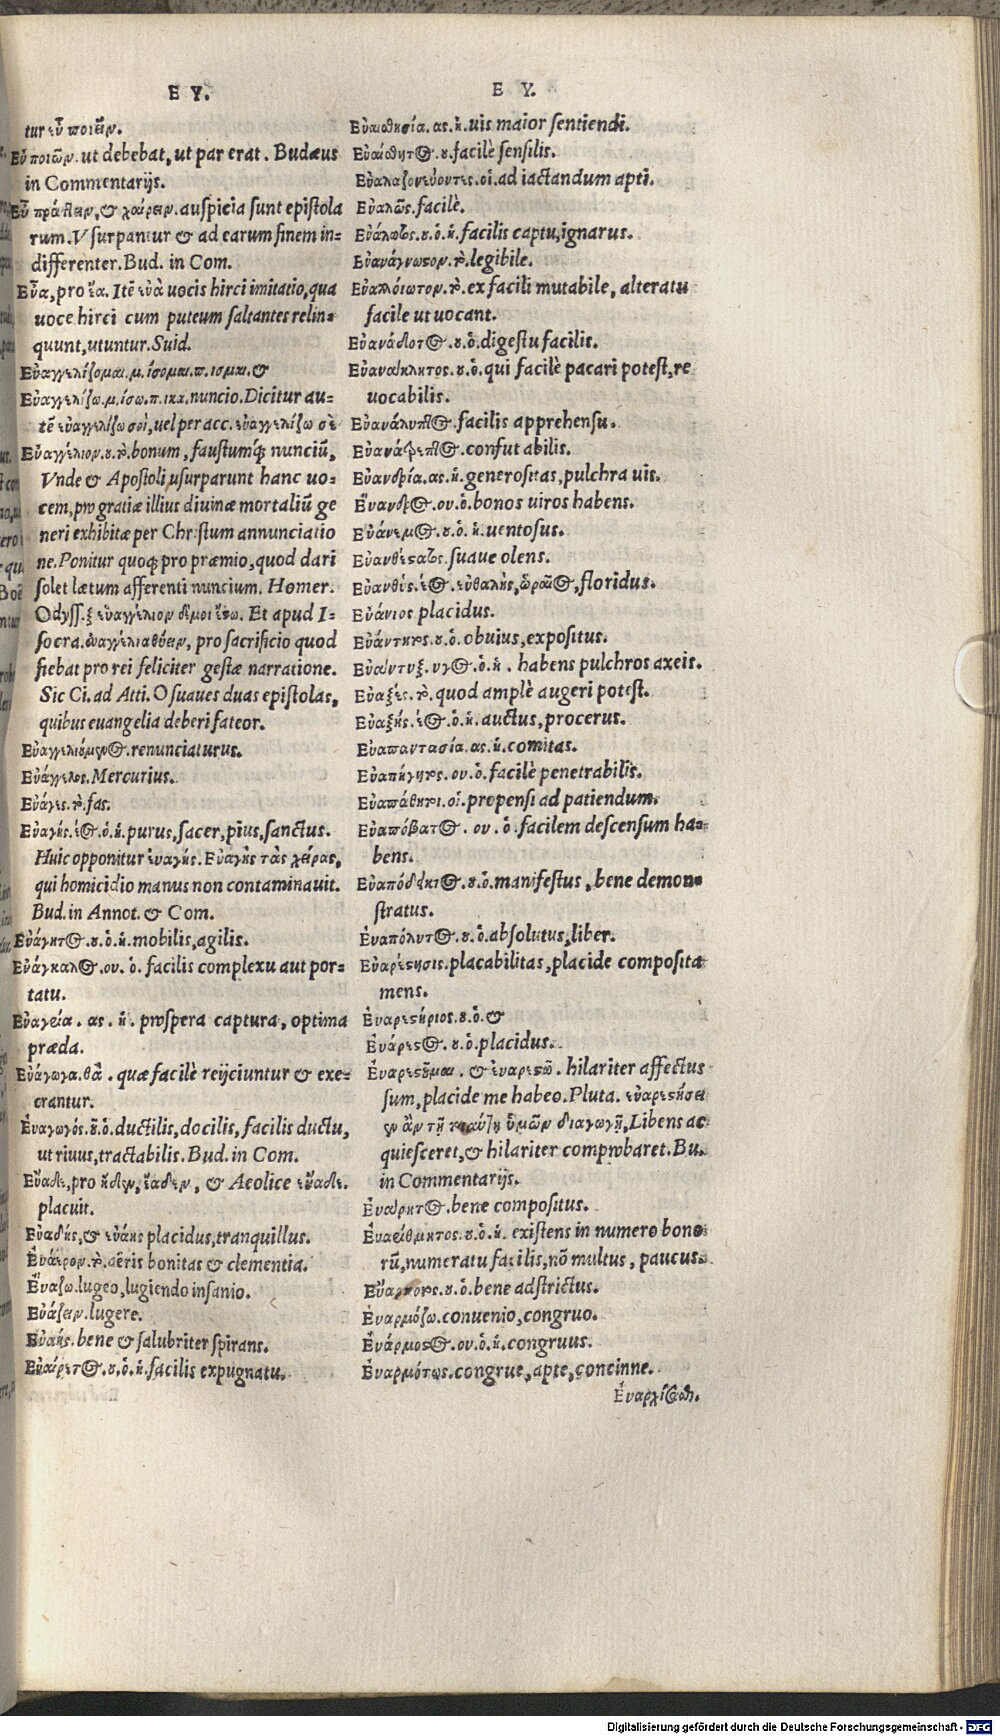 E Y.
tur εὖ ποιεῖν.
Εὖ ποιῶν. ut debebat, ut par erat. Budæus
in Commentarijs.
Εὖ πράττειν, & χαίρειν. auspicia sunt epistola
rum. Vsurpantur & ad earum finem in=
differenter. Bud. in Com.
Εὖα, pro ἔα. Itẽ εὐὰ uocis hirci imitatio, qua
uoce hirci cum puteum saltantes relin=
quunt, utuntur. Suid.
Εὐαγγελίζομαι. μ. ίσομαι. π. ισμαι. &
Εὐαγγελίζω. μ. ίσω. π. ικα. nuncio. Dicitur au=
tẽ εὐαγγελίζω σοὶ, uel per acc. εὐαγγελίζω σὲ
Εὐαγγέλιον. ου. τὸ. bonum, faustumq́; nunciũ,
Vnde & Apostoli usurparunt hanc uo=
cem, pro gratiæ illius diuinæ mortaliũ ge
neri exhibitæ per Christum annunciatio
ne. Ponitur quoq; pro præmio, quod dari
solet lætum afferenti nuncium. Homer.
Odyss. ξ εὐαγγέλιον δέ μοι ἔστω. Et apud I=
socra. εὐαγγέλια θύειν, pro sacrificio quod
fiebat pro rei feliciter gestæ narratione.
Sic Ci. ad Atti. O suaues duas epistolas,
quibus euangelia deberi fateor.
Εὐαγγελιούμενος. renunciaturus.
Εὐάγγελος. Mercurius.
Εὐάγες. τὸ. fas.
Εὐαγής. έος. ὁ. ἡ. purus, sacer, pius, sanctus.
Huic opponitur ἐναγής. Εὐαγὴς τὰς χεῖρας,
qui homicidio manus non contaminauit.
Bud. in Annot. & Com.
Εὐάγητος. ου. ὁ. ἡ. mobilis, agilis.
Εὐάγκαλος. ου. ὁ. facilis complexu aut por=
tatu.
Εὐαγρεία. ας. ἡ. prospera captura, optima
præda.
Εὐάγωγα. θᾶ. quæ facilè reijciuntur & exe=
crantur.
Εὐαγωγός. οῦ. ὁ. ductilis, docilis, facilis ductu,
ut riuus, tractabilis. Bud. in Com.
Εὔαδε, pro ἥδεν, ἔαδεν, & Aeolice εὔαδε.
placuit.
Εὐαδής, & εὐάης placidus, tranquillus.
Εὐάερον. τὸ. aëris bonitas & clementia.
Εὐάζω. lugeo, lugiendo insanio.
Εὐάζειν. lugere.
Εὐαής. bene & salubriter spirans.
Εὐαίρετος. ου. ὁ. ἡ. facilis expugnatu.
E Y.
Εὐαισθησία. ας. ἡ. uis maior sentiendi.
Εὐαίσθητος. ου. facilè sensilis.
Εὐαλαζονεύοντες. οἱ. ad iactandum apti.
Εὐαλῶς. facilè.
Εὐάλωτος. ου. ὁ. ἡ. facilis captu, ignarus.
Εὐανάγνωστον. τὸ. legibile.
Εὐαλλοίωτον. τὸ. ex facili mutabile, alteratu
facile ut uocant.
Εὐανάδοτος. ου. ὁ. digestu facilis.
Εὐανάκλητος. ου. ὁ. qui facilè pacari potest, re
uocabilis.
Εὐανάληπτος. facilis apprehensu.
Εὐανάτρεπτος. confutabilis.
Εὐανδρία. ας. ἡ. generositas, pulchra uis.
Εὔανδρος. ου. ὁ. bonos uiros habens.
Εὐάνεμος. ου. ὁ. ἡ. uentosus.
Εὐανθέστατος. suaue olens.
Εὐανθής. έος. εὐθαλής, ὡραῖος, floridus.
Εὐάνιος placidus.
Εὐάντητος. ου. ὁ. obuius, expositus.
Εὐάντυξ. υγος. ὁ. ἡ. habens pulchros axeis.
Εὐαξές. τὸ. quod amplè augeri potest.
Εὐαξής. έος. ὁ. ἡ. auctus, procerus.
Εὐαπαντασία. ας. ἡ. comitas.
Εὐαπήγητος. ου. ὁ. facilè penetrabilis.
Εὐαπάθητοι. οἱ. propensi ad patiendum.
Εὐαπόβατος. ου. ὁ. facilem descensum ha=
bens.
Εὐαπόδεικτος. ου. ὁ. manifestus, bene demon=
stratus.
Εὐαπόλυτος. ου. ὁ. absolutus, liber.
Εὐαρέστησις. placabilitas, placide composita
mens.
Εὐαρεστήριος. ου. ὁ. &
Εὐάρεστος. ου. ὁ. placidus.
Εὐαρεστοῦμαι. & εὐαρεστῶ. hilariter affectus
sum, placide me habeo. Pluta. εὐαρεστήσει
ἂν τῇ ταύτῃ ὑμῶν διαγωγῇ, Libens ac
quiesceret, & hilariter comprobaret. Bu.
in Commentarijs.
Εὐάρητος. bene compositus.
Εὐαρίθμητος. ου. ὁ. ἡ. existens in numero bono
rũ, numeratu facilis, nõ multus, paucus.
Εὔαρκτος. ου. ὁ. bene adstrictus.
Εὐαρμόζω. conuenio, congruo.
Εὐάρμοστος. ου. ὁ. ἡ. congruus.
Εὐαρμότως. congrue, apte, concinne.